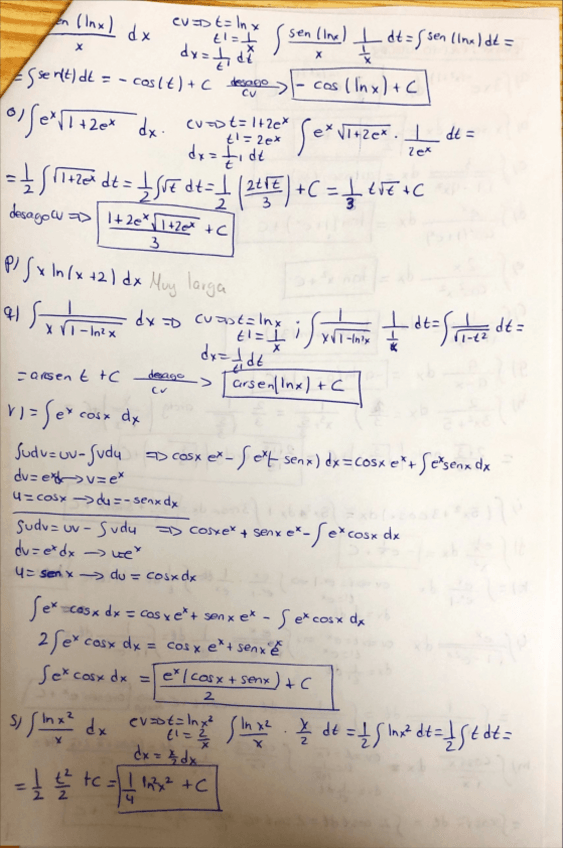 en (lnx)/x dx CV=>t=lnx t'=1/x dx=1/t' dt ∫ sen(lnx)/x · 1/(1/x) dt=∫sen(lnx)dt=
=∫sen(t)dt = -cos(t)+C desago cv → -cos(lnx)+C
o) ∫e^x√(1+2e^x) dx. CV=>t=1+2e^x t'=2e^x dx=1/t' dt ∫e^x √(1+2e^x) · 1/(2e^x) dt=
=1/2 ∫√(1+2e^x) dt=1/2∫√t dt=1/2 (2t√t/3)+C=1/3 t√t+C
desago CV => (1+2e^x√(1+2e^x))/3 +C
p) ∫x ln(x+2) dx Muy larga
q) ∫ 1/(x√(1-ln²x)) dx => CV=>t=lnx t'=1/x dx=1/t' dt ; ∫ 1/(x√(1-ln²x)) 1/(1/x) dt=∫ 1/√(1-t²) dt=
=arsen t +C desago cv → arsen(lnx)+C
r) =∫e^x cosx dx
∫udv=uv-∫vdu => cosx e^x-∫e^x(-senx)dx=cosx e^x+∫e^x senx dx
dv=e^x dx→v=e^x
u=cosx→du=-senxdx
∫udv=uv-∫vdu => cosxe^x+senx e^x-∫e^x cosx dx
dv=e^x dx → v=e^x
u=senx → du=cosxdx
∫e^x cosx dx=cosx e^x+senx e^x - ∫e^x cosx dx
2∫e^x cosx dx= cosx e^x+senx e^x
∫e^x cosx dx = e^x(cosx+senx)/2 +C
s) ∫ lnx²/x dx CV=>t=lnx² t'=2/x dx=x/2 dx ∫ lnx²/x · x/2 dt=1/2∫lnx² dt=1/2∫t dt=
=1/2 t²/2 +C=1/4 ln²x²+C